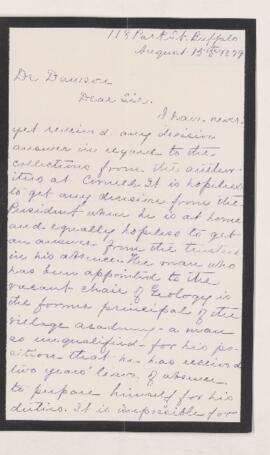 118 Park St. Buffalo
August 15th 1879
Dr Dawson
Dear Sir.
I have never
yet received any decisive
answer in regard to the
collections from the author-
ities at Cornell. It is hopeless
to get any decision from the
President when he is at home
and equally hopeless to get
an answer from the trustees
in his absence. The man who
has been appointed to the
vacant chair of Geology is
the former principal of the
village academy - a man
so unqualified for his po-
sition that he has received
two years' leave of absence
to prepare himself for his
duties. It is impossible for